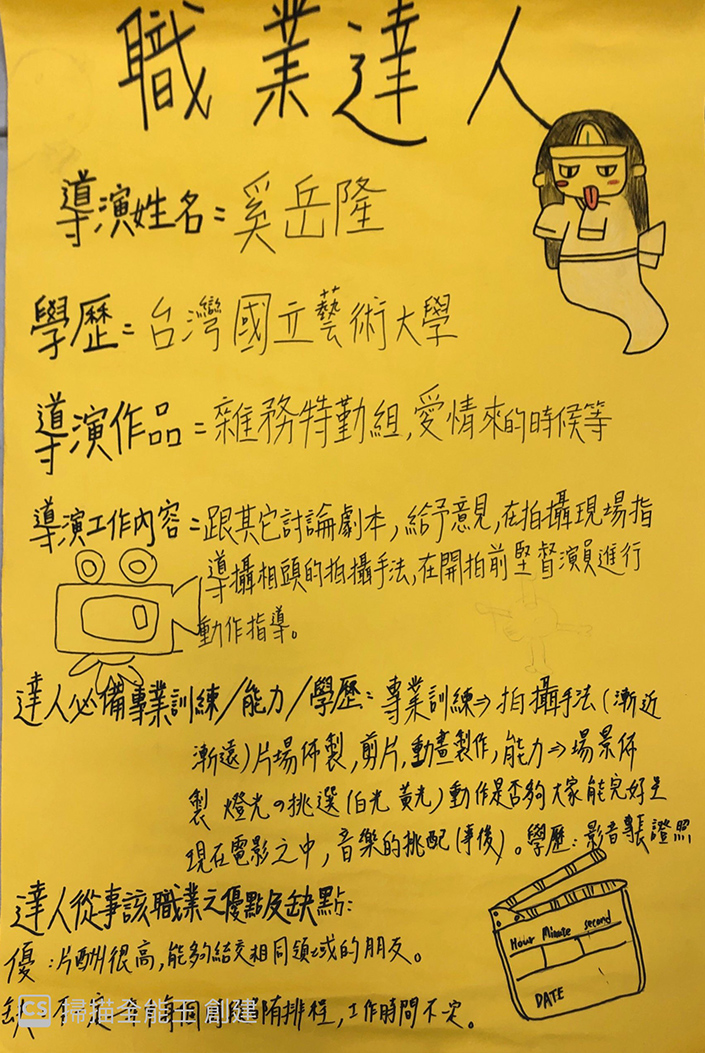 職業達人
導演姓名=奚岳隆
學歷=台灣國立藝術大學
導演作品=雜務特勤組,愛情來的時候等
導演工作內容=跟其它討論劇本,給予意見,在拍攝現場指
導攝相頭的拍攝手法,在開拍前堅督演員進行
動作指導。
達人必備專業訓練/能力/學歷:專業訓練⇒拍攝手法(漸近
漸遠)片場佈製,剪片,動畫製作,能力⇒場景佈
製 燈光的挑選(白光 黃光)動作是否夠大家能完好呈
現在電影之中,音樂的挑配(事後)。學歷:影音專長證照
達人從事該職業之優點及缺點:
優:片酬很高,能夠結交相同領域的朋友。
缺:不定 有排程,工作時間不定。
Hour Minute second
DATE
CS 掃描全能王 創建